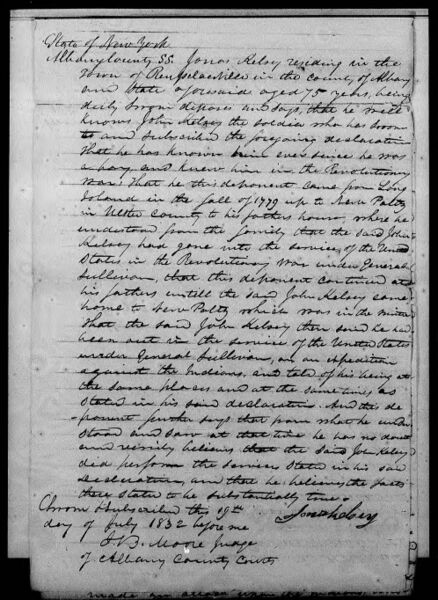 State of New York
Albany County SS. Jonas Kelsey residing in the
Town of Rensselaerville in the county of Albany
and State aforesaid aged 75 years, being
duly sworn deposes and says, that he well
knows John Kelsey the soldier who has sworn
to and subscribed the foregoing declaration
that he has known him ever since he was
a boy, and knew him in the Revolutionary
War; that he this deponent came from Long
Island in the fall of 1779 up to New Paltz
in Ulster County to his fathers house, where he
understood from the family that the said John
Kelsey had gone into the service of the United
States in the Revolutionary War under General
Sullivan, that this deponent continued at
his fathers untill the said John Kelsey came
home to New Paltz which was in the
that the said John Kelsey then said he had
been out in the service of the United States
under General Sullivan, on an expedition
against the Indians, and told of his being at
the same places and at the same times as
stated in his said declaration. And this de-
ponent further says that from what he under
stood and saw at that time he has no doubt
and verily believes that the said John Kelsey
did perform the services stated in his said
declaration, and that he believes the facts
there stated to be substantially true.
Sworn & Subscribed this 19th
day of July 1832 before me
Jonas Kelsey
J B. Moore Judge
of Albany County Courts
made an